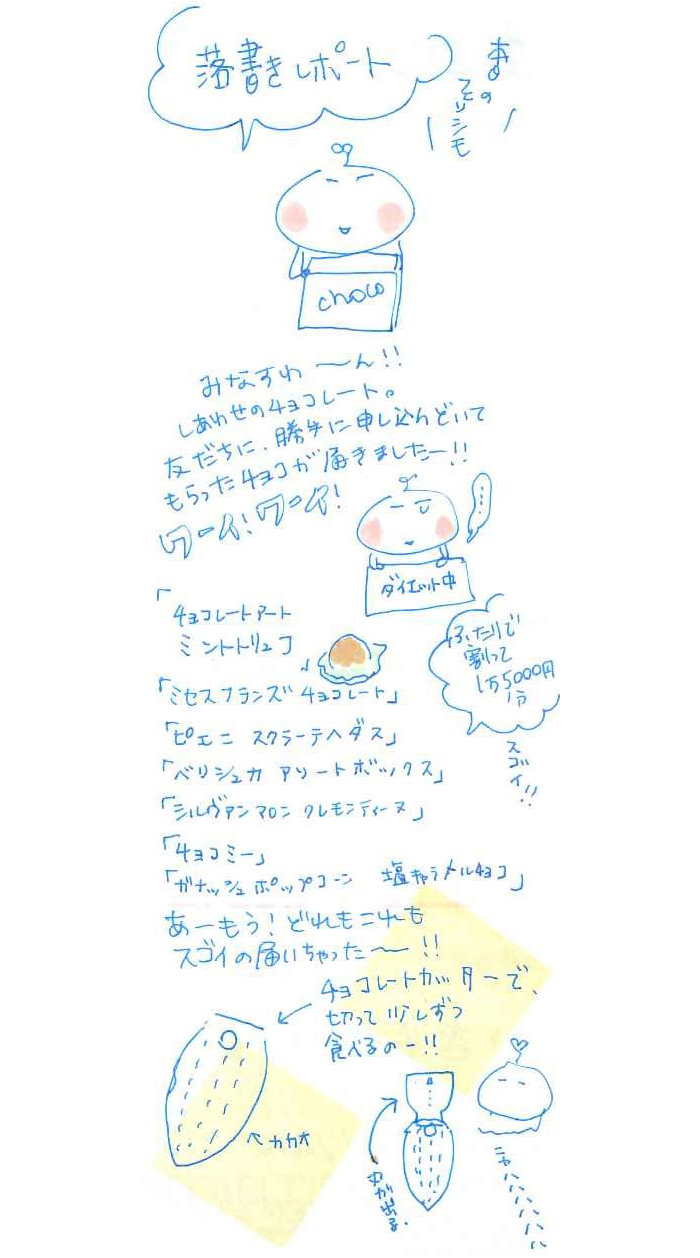 落書きレポート
choco
みなすわ〜ん!!
しあわせのチョコレート。
友だちに、勝手に申し込んどいて
もらったチョコが届きましたー!!
ワーイ!ワーイ!
ダイエット中
「
チョコレートアート
ミントトリュフ
」
ふたりで
割って
1万5000円
分
スゴイ!!
「ミセスフランズ チョコレート」
「ピエニ スクラーテヘダス」
「ベリシュカ アソートボックス」
「シルヴァンマロン クレモンティーヌ」
「チョコミー」
「ガナッシュポップコーン 塩キャラメルチョコ」
あーもう!どれもこれも
スゴイの届いちゃった〜!!
チョコレートカッターで、
切って少しずつ
食べるのー!!
←カカオ
ニャハハハハハハハ